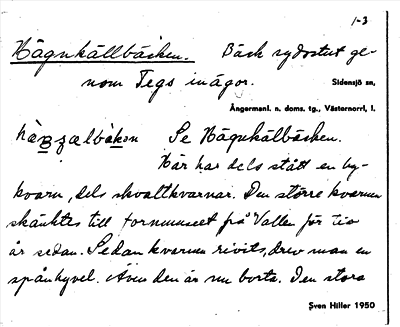 1-3
Hägnkällbäcken. Bäck sydostut ge-
nom Tegs inägor.
Sidensjö sn,
Ångermanl. n. doms. tg., Västernorrl, l.
Se Hägnkälbäcken.
Här har dels stått en by-
kvarn, dels skvaltkvarnar. Den större kvarnen
skänktes till fornmuseet på Vallen för tio
år sedan. Sedan kvarnen rivits, drev man en
spånhyvel. Även den är nu borta. Den stora
Sven Hiller 1950